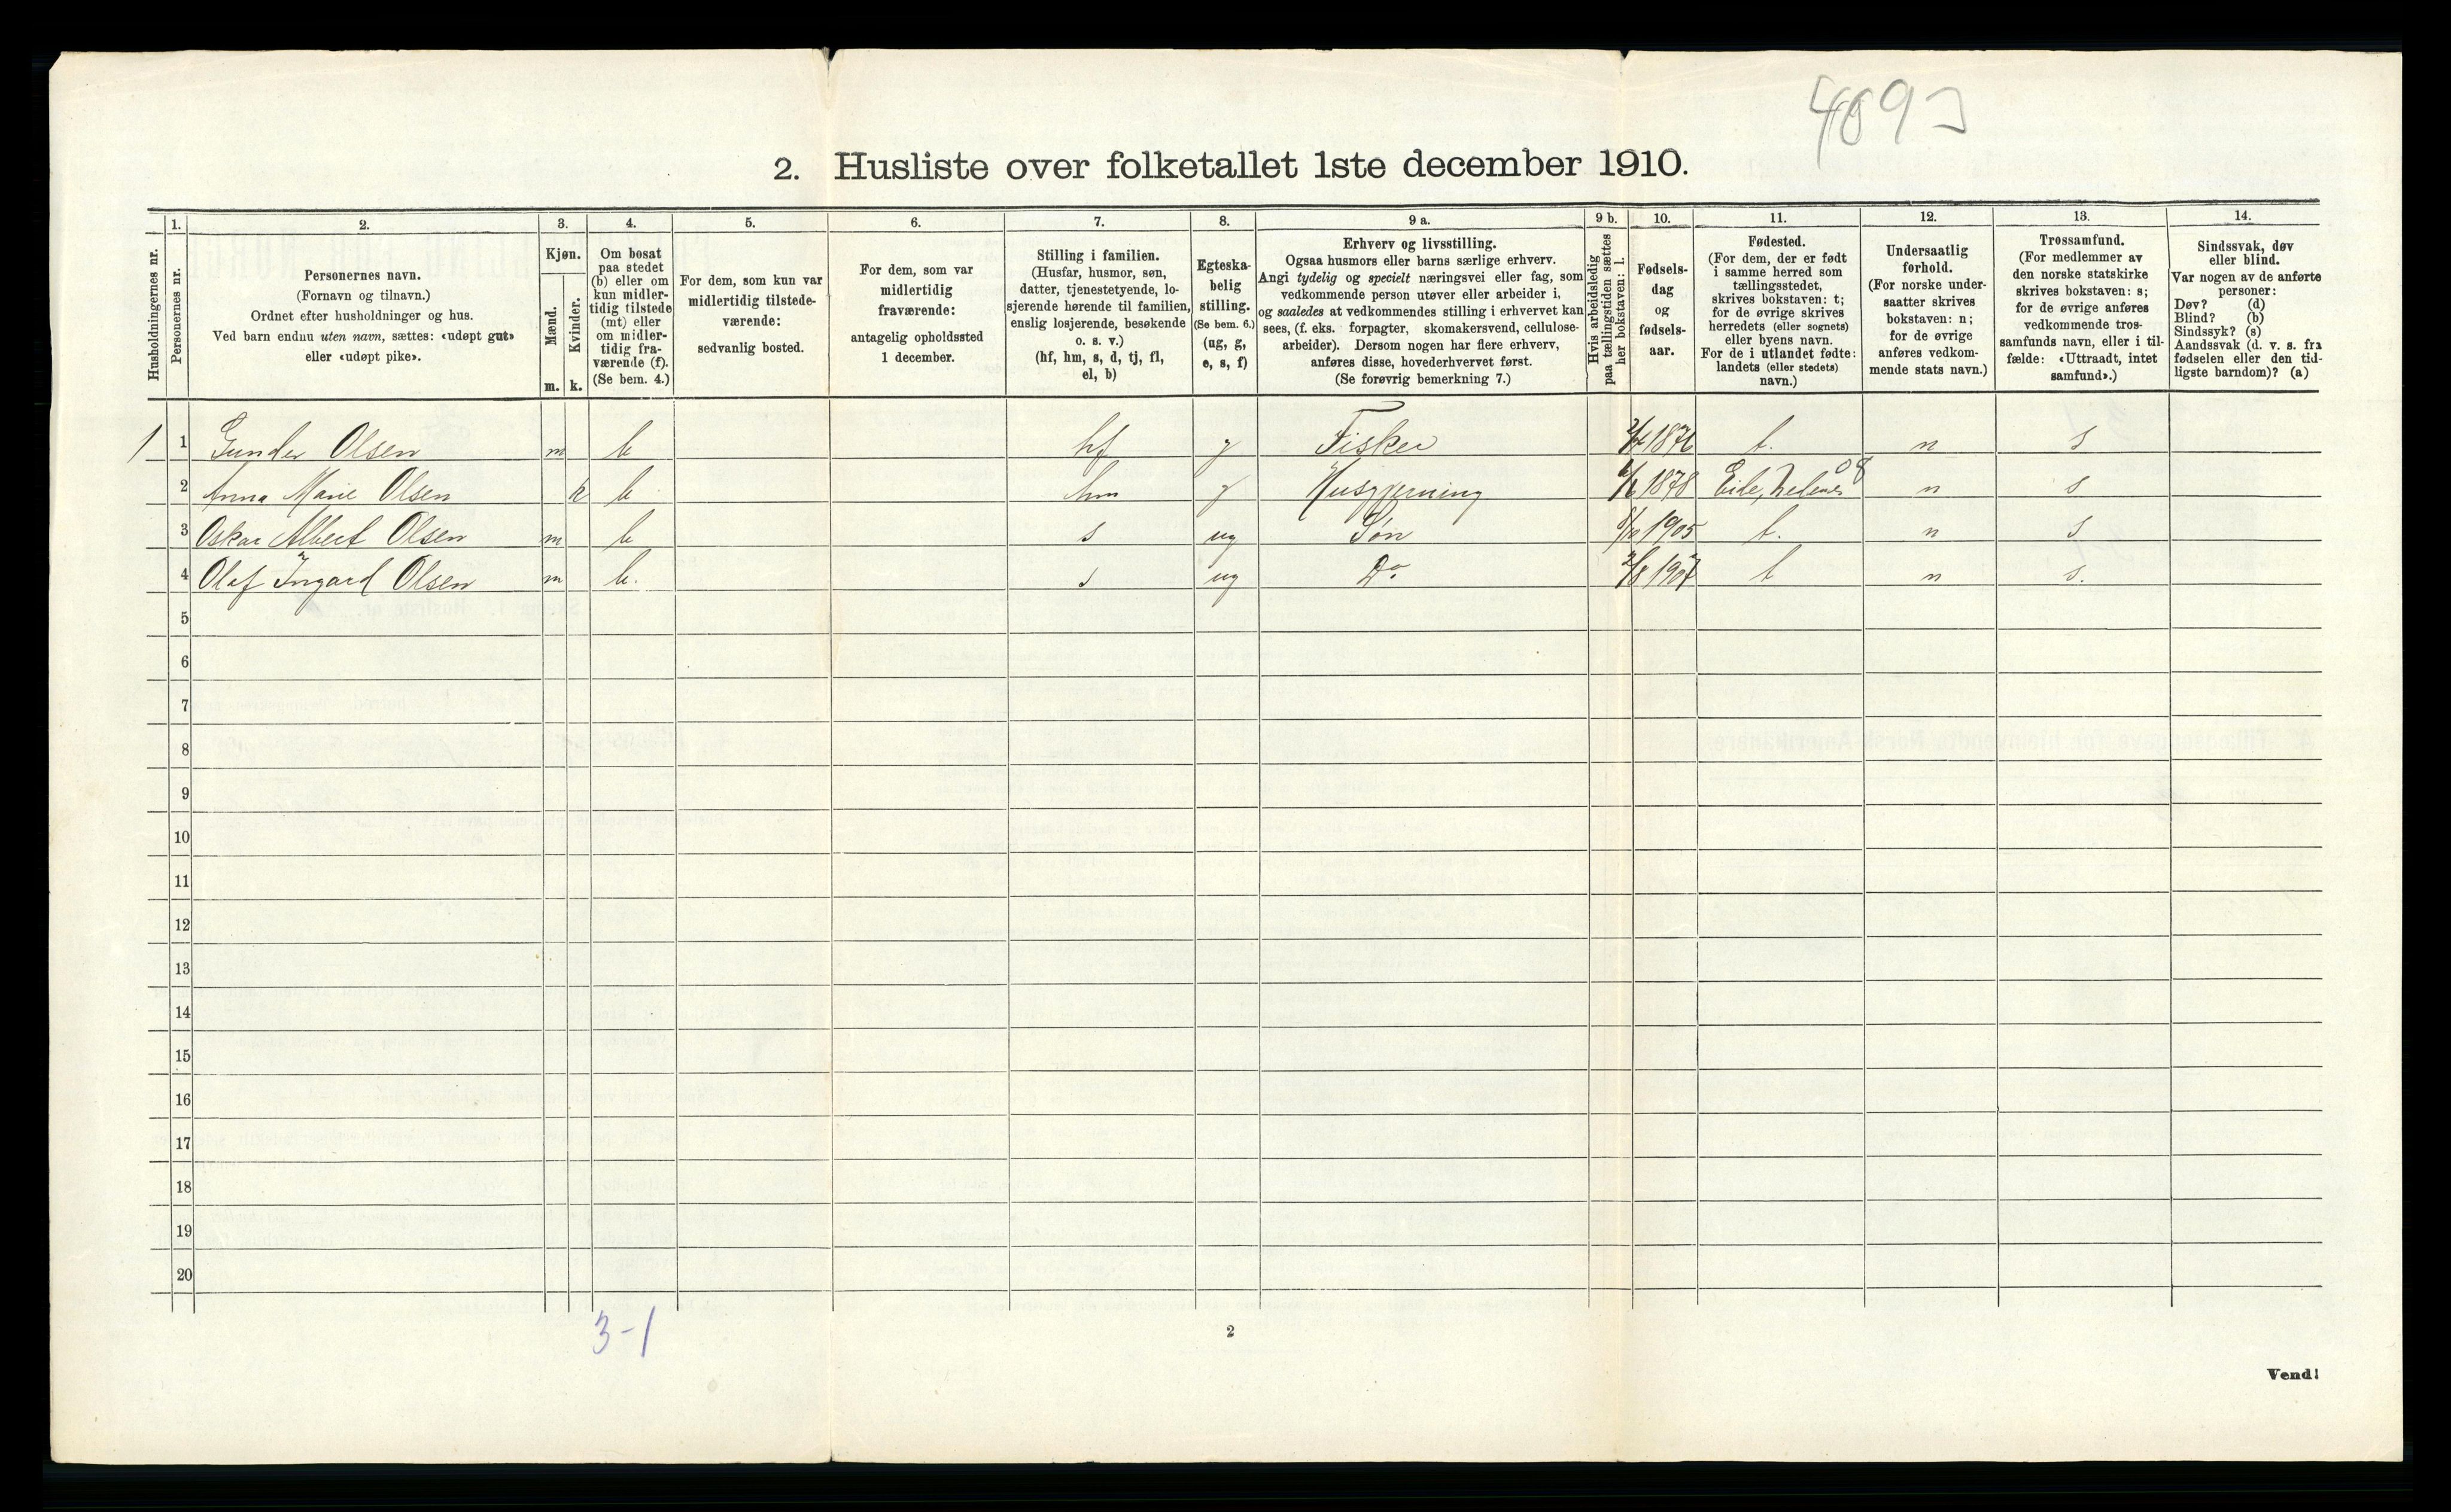 409
2. Husliste over folketallet 1ste december 1910.
Husholdningernes nr.
1.
Personernes nr.
2.
Personernes navn.
(Fornavn og tilnavn.)
Ordnet efter husholdninger og hus.
Ved barn endnu uten navn, sættes: «udøpt gut»
eller «udøpt pike».
3.
Kjøn.
Mænd.
Kvinder.
m. k.
4.
Om bosat
paa stedet
(b) eller om
kun midler-
tidig tilstede
(mt) eller
om midler-
tidig fra-
værende (f).
(Se bem. 4.)
5.
For dem, som kun var
midlertidig tilstede-
værende:
sedvanlig bosted.
6.
For dem, som var
midlertidig
fraværende:
antagelig opholdssted
1 december.
7.
Stilling i familien.
(Husfar, husmor, søn,
datter, tjenestetyende, lo-
sjerende hørende til familien,
enslig losjerende, besøkende
o. s. v.)
(hf, hm, s, d, tj, fl,
el, b)
8.
Egteska-
belig
stilling.
(Se bem. 6.)
(ug, g,
e, s, f)
9 a.
Erhverv og livsstilling.
Ogsaa husmors eller barns særlige erhverv.
Angi tydelig og specielt næringsvei eller fag, som
vedkommende person utøver eller arbeider i,
og saaledes at vedkommendes stilling i erhvervet kan
sees, (f. eks. forpagter, skomakersvend, cellulose-
arbeider). Dersom nogen har flere erhverv,
anføres disse, hovederhvervet først.
(Se forøvrig bemerkning 7.)
9 b.
Hvis arbeidsledig
paa tællingstiden sættes
her bokstaven: l.
10.
Fødsels-
dag
og
fødsels-
aar.
11.
Fødested.
(For dem, der er født
i samme herred som
tællingsstedet,
skrives bokstaven: t;
for de øvrige skrives
herredets (eller sognets)
eller byens navn.
For de i utlandet fødte:
landets (eller stedets)
navn.)
12.
Undersaatlig
forhold.
(For norske under-
saatter skrives
bokstaven: n;
for de øvrige
anføres vedkom-
mende stats navn.)
13.
Trossamfund.
(For medlemmer av
den norske statskirke
skrives bokstaven: s;
for de øvrige anføres
vedkommende tros-
samfunds navn, eller i til-
fælde: «Uttraadt, intet
samfund».)
14.
Sindssvak, døv
eller blind.
Var nogen av de anførte
personer:
Døv? (d)
Blind? (b)
Sindssyk? (s)
Aandssvak (d. v. s. fra
fødselen eller den tid-
ligste barndom)? (a)
1 1 Gunder Olsen m b hf g Fisker 1876 t. n s
2 Anna Marie Olsen k b hm g Husgjerning 1878 Eide, 08 n s
3 Oskar Albert Olsen m b s ug Søn 1905 t. n s
4 Olaf Ingard Olsen m b. s ug Do 1907 t n s.
5
6
7
8
9
10
11
12
13
14
15
16
17
18
19
20
3-1
2
Vend!